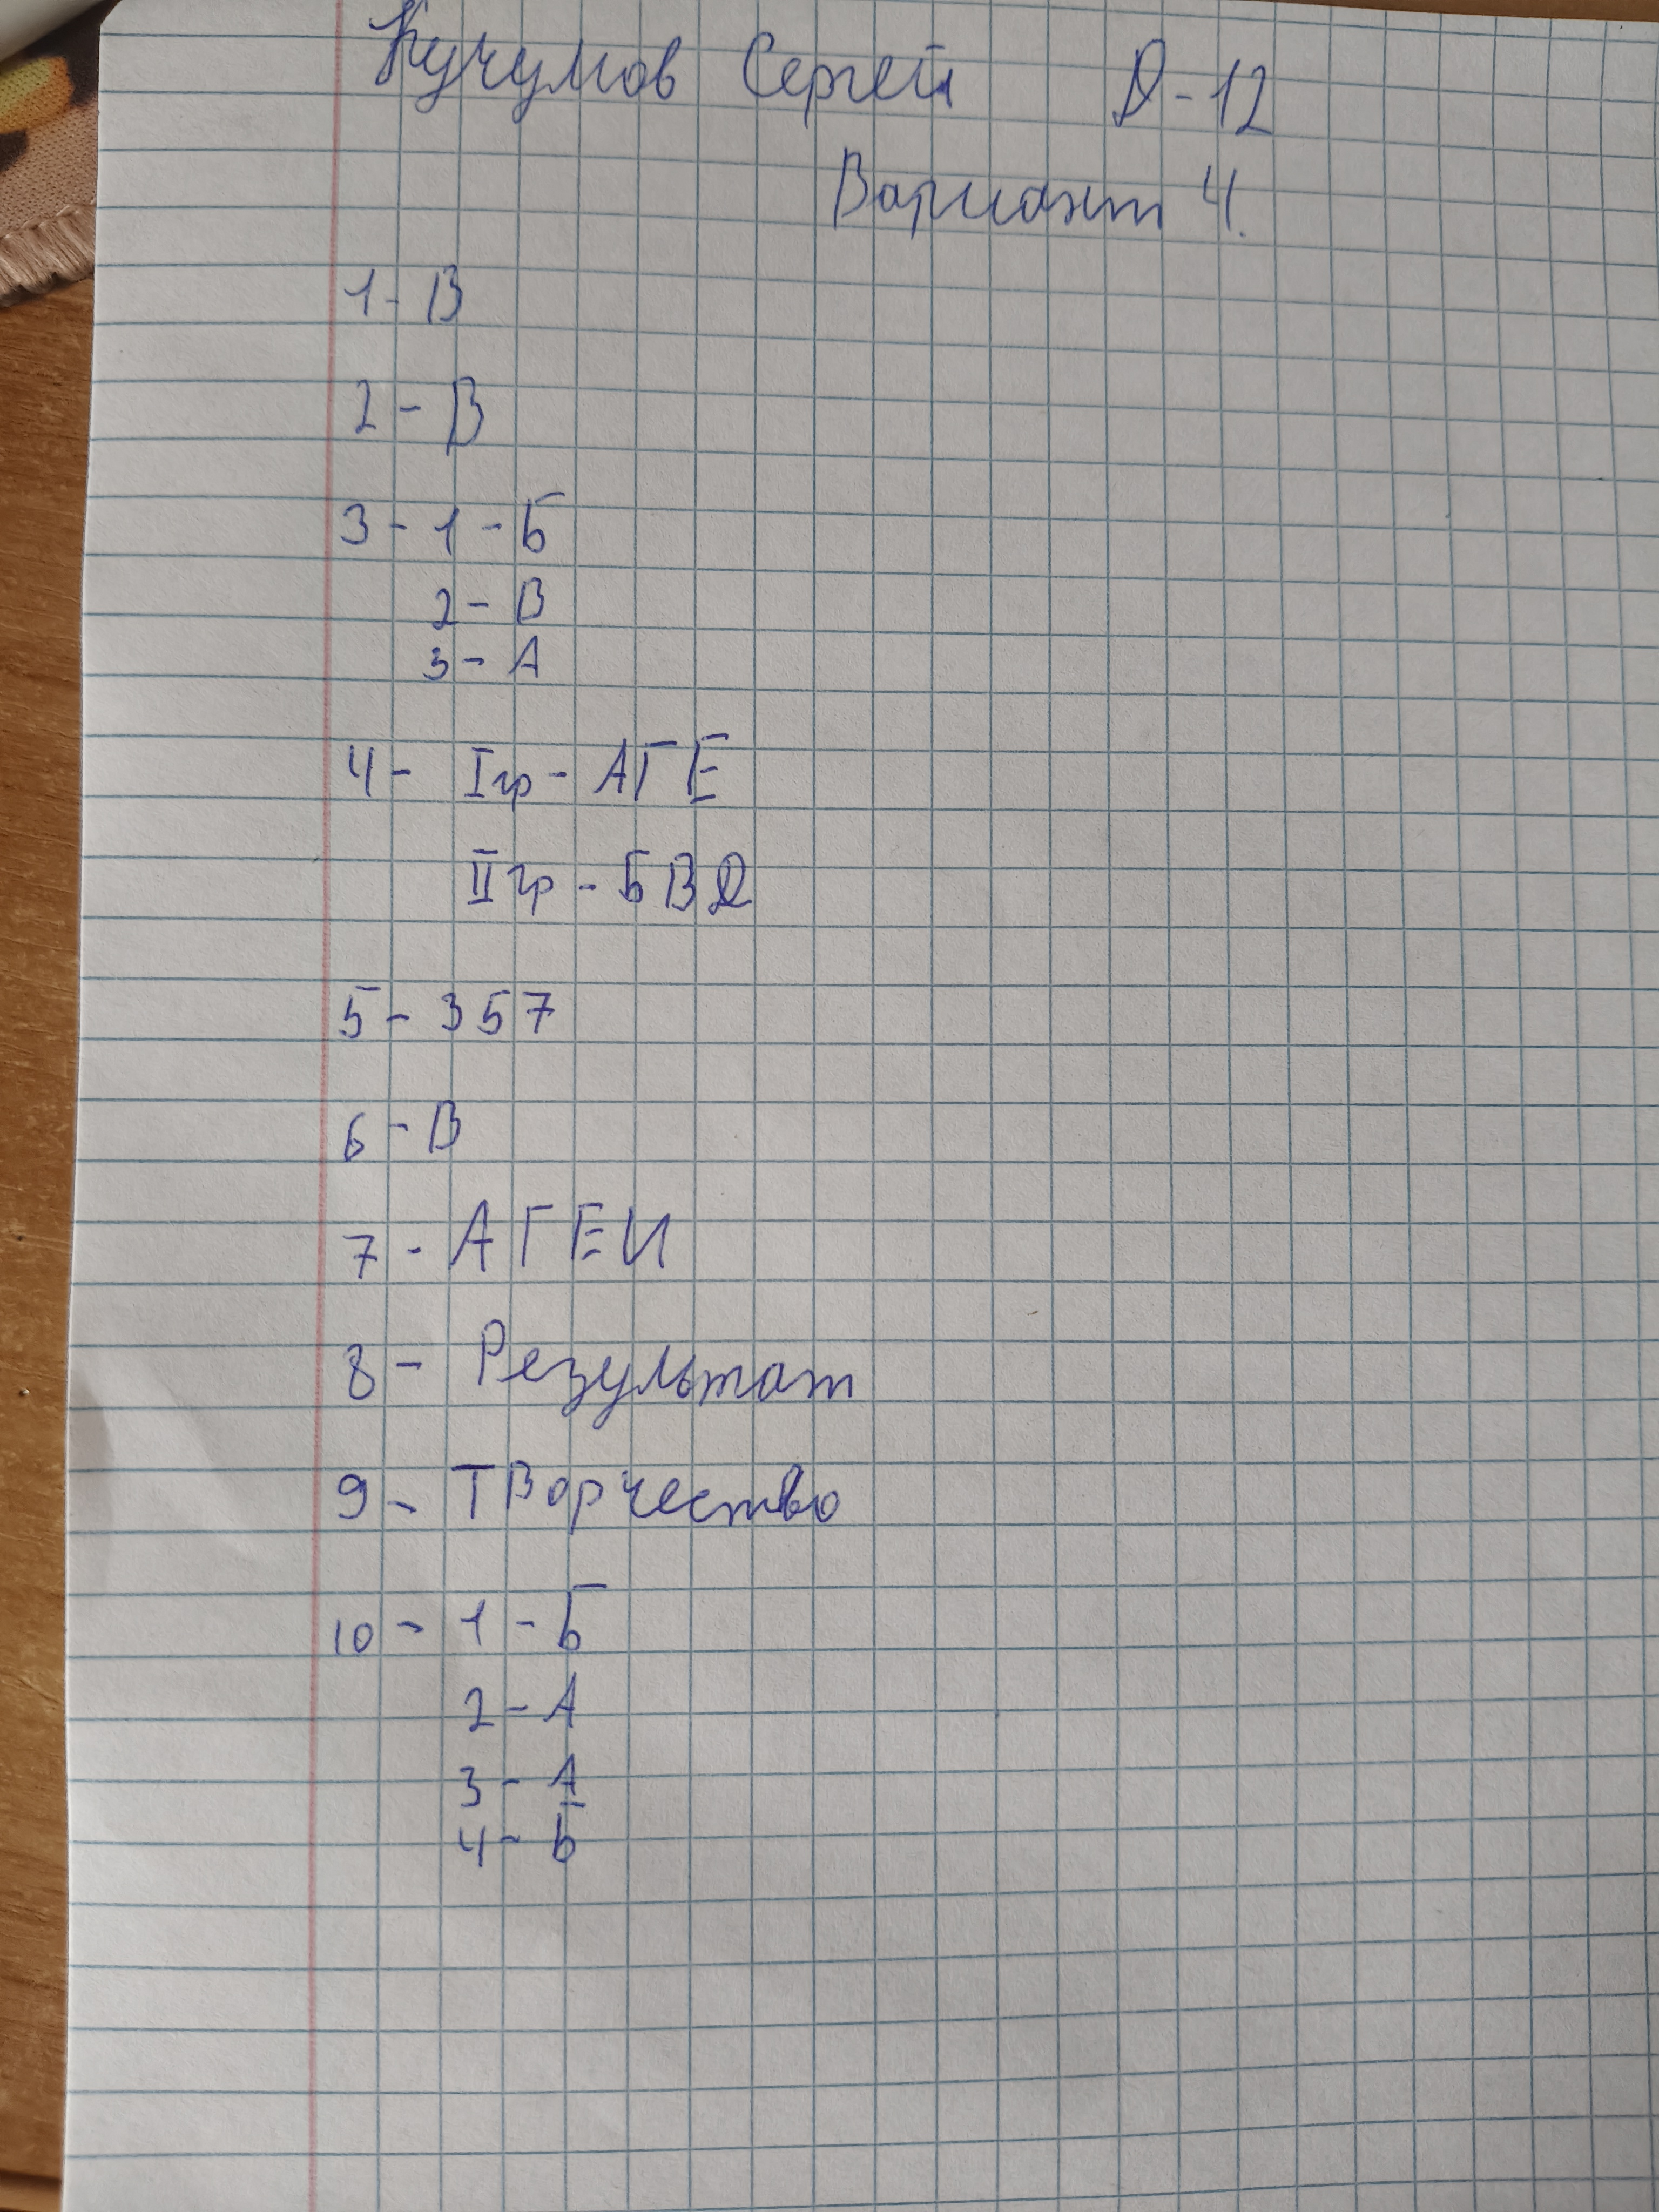 Кучумов Сергей Д-12
Вариант 4.
1- В
2 - В
3 - 1 - Б
2 - В
3 - А
4 - I гр - АГЕ
II гр - БВД
5 - 357
6 - В
7 - АГЕИ
8 - Результат
9 - Творчество
10 - 1 - Б
2 - А
3 - А
4 - Б